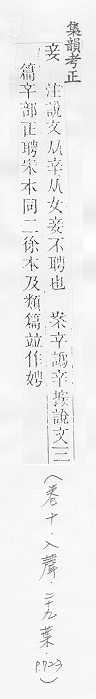 集韻考正
妾 注說文从䇂从女妾不聘也 案䇂譌辛據說文三
篇䇂部正聘宋本同二徐本及類篇竝作娉
(卷十.入聲.二十九葉.P723)